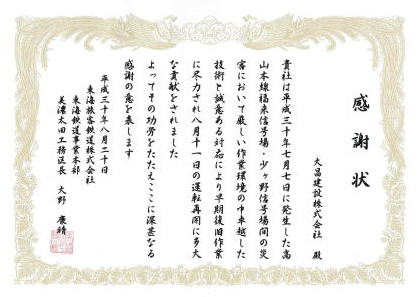 感謝状
大昌建設株式会社 殿
貴社は平成三十年七月七日に発生した高
山本線福来信号場・少ヶ野信号場間の災
害において厳しい作業環境の中卓越した
技術と誠意ある対応により早期復旧作業
に尽力され八月十一日の運転再開に多大
な貢献をされました
よってその功労をたたえここに深甚なる
感謝の意を表します
平成三十年八月二十日
東海旅客鉄道株式会社
東海鉄道事業本部
美濃太田工務区長 大野 康晴